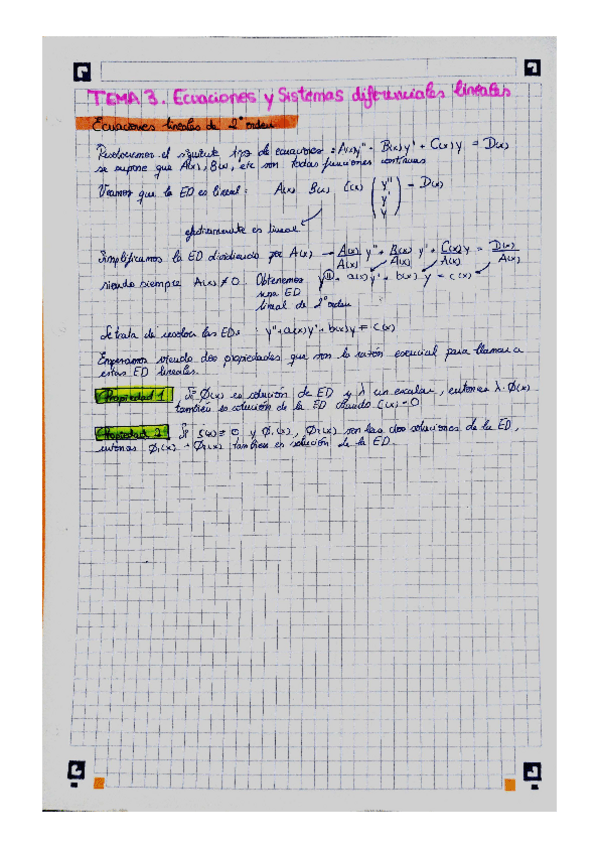 TEMA 3. Ecuaciones y Sistemas diferenciales lineales
Ecuaciones lineales de 2º orden
Resolveremos el siguiente tipo de ecuaciones: A(x)y'' + B(x)y' + C(x)y = D(x)
se supone que A(x), B(x), etc son todas funciones continuas
Veamos que la ED es lineal: A(x) B(x) C(x) (y'' y' y) = D(x)
efectivamente es lineal
Simplificamos la ED dividiendo por A(x) → A(x)/A(x) y'' + B(x)/A(x) y' + C(x)/A(x) y = D(x)/A(x)
siendo siempre A(x) ≠ 0. Obtenemos y'' + a(x)y' + b(x)y = c(x)
una ED
lineal de 2º orden
Se trata de resolver las EDs: y'' + a(x)y' + b(x)y = c(x)
Empezamos viendo dos propiedades que son la razón esencial para llamar a
estas ED lineales.
Propiedad 1 Si Ø(x) es solución de ED y λ un escalar, entonces λ·Ø(x)
también es solución de la ED cuando c(x) = 0
Propiedad 2 Si c(x) = 0 y Ø₁(x), Ø₂(x) son las dos soluciones de la ED,
entonces Ø₁(x) + Ø₂(x) también es solución de la ED.